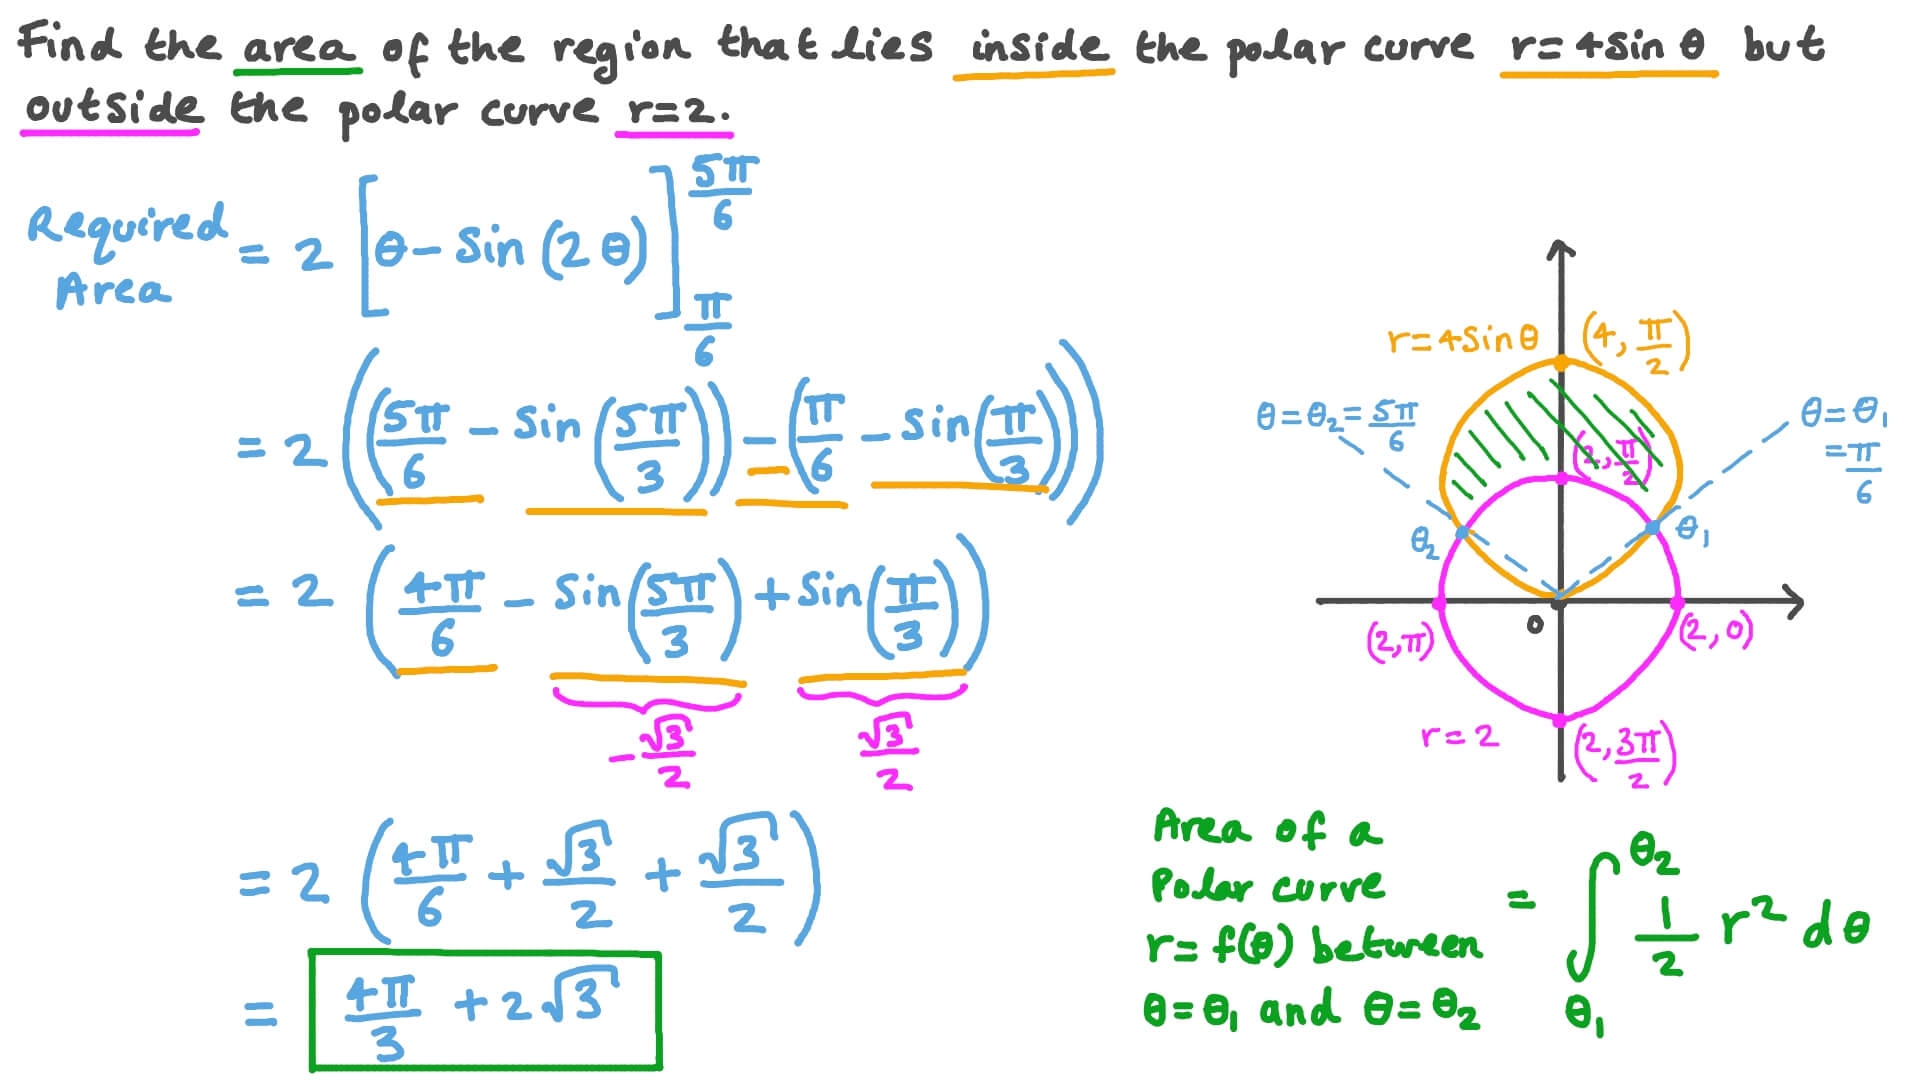 Find the area of the region that lies inside the polar curve r=4sin θ but
outside the polar curve r=2.
Required Area = 2 [θ - Sin (2θ)]_{π/6}^{5π/6}
= 2 ((5π/6 - Sin (5π/3)) - (π/6 - Sin (π/3)))
= 2 (4π/6 - Sin (5π/3) + Sin (π/3))
-√3/2 √3/2
= 2 (4π/6 + √3/2 + √3/2)
= 4π/3 + 2√3
r=4Sinθ (4, π/2)
θ=θ₂=5π/6
θ=θ₁
=π/6
(2, π/2)
θ₂ θ₁
0
(2,π) (2,0)
r=2 (2, 3π/2)
Area of a
Polar curve
r= f(θ) between
θ=θ₁ and θ=θ₂
= ∫_{θ₁}^{θ₂} 1/2 r² dθ